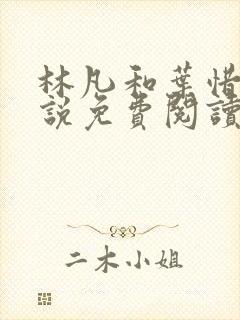 林凡和葉惜
説免費閱讀
二木小姐